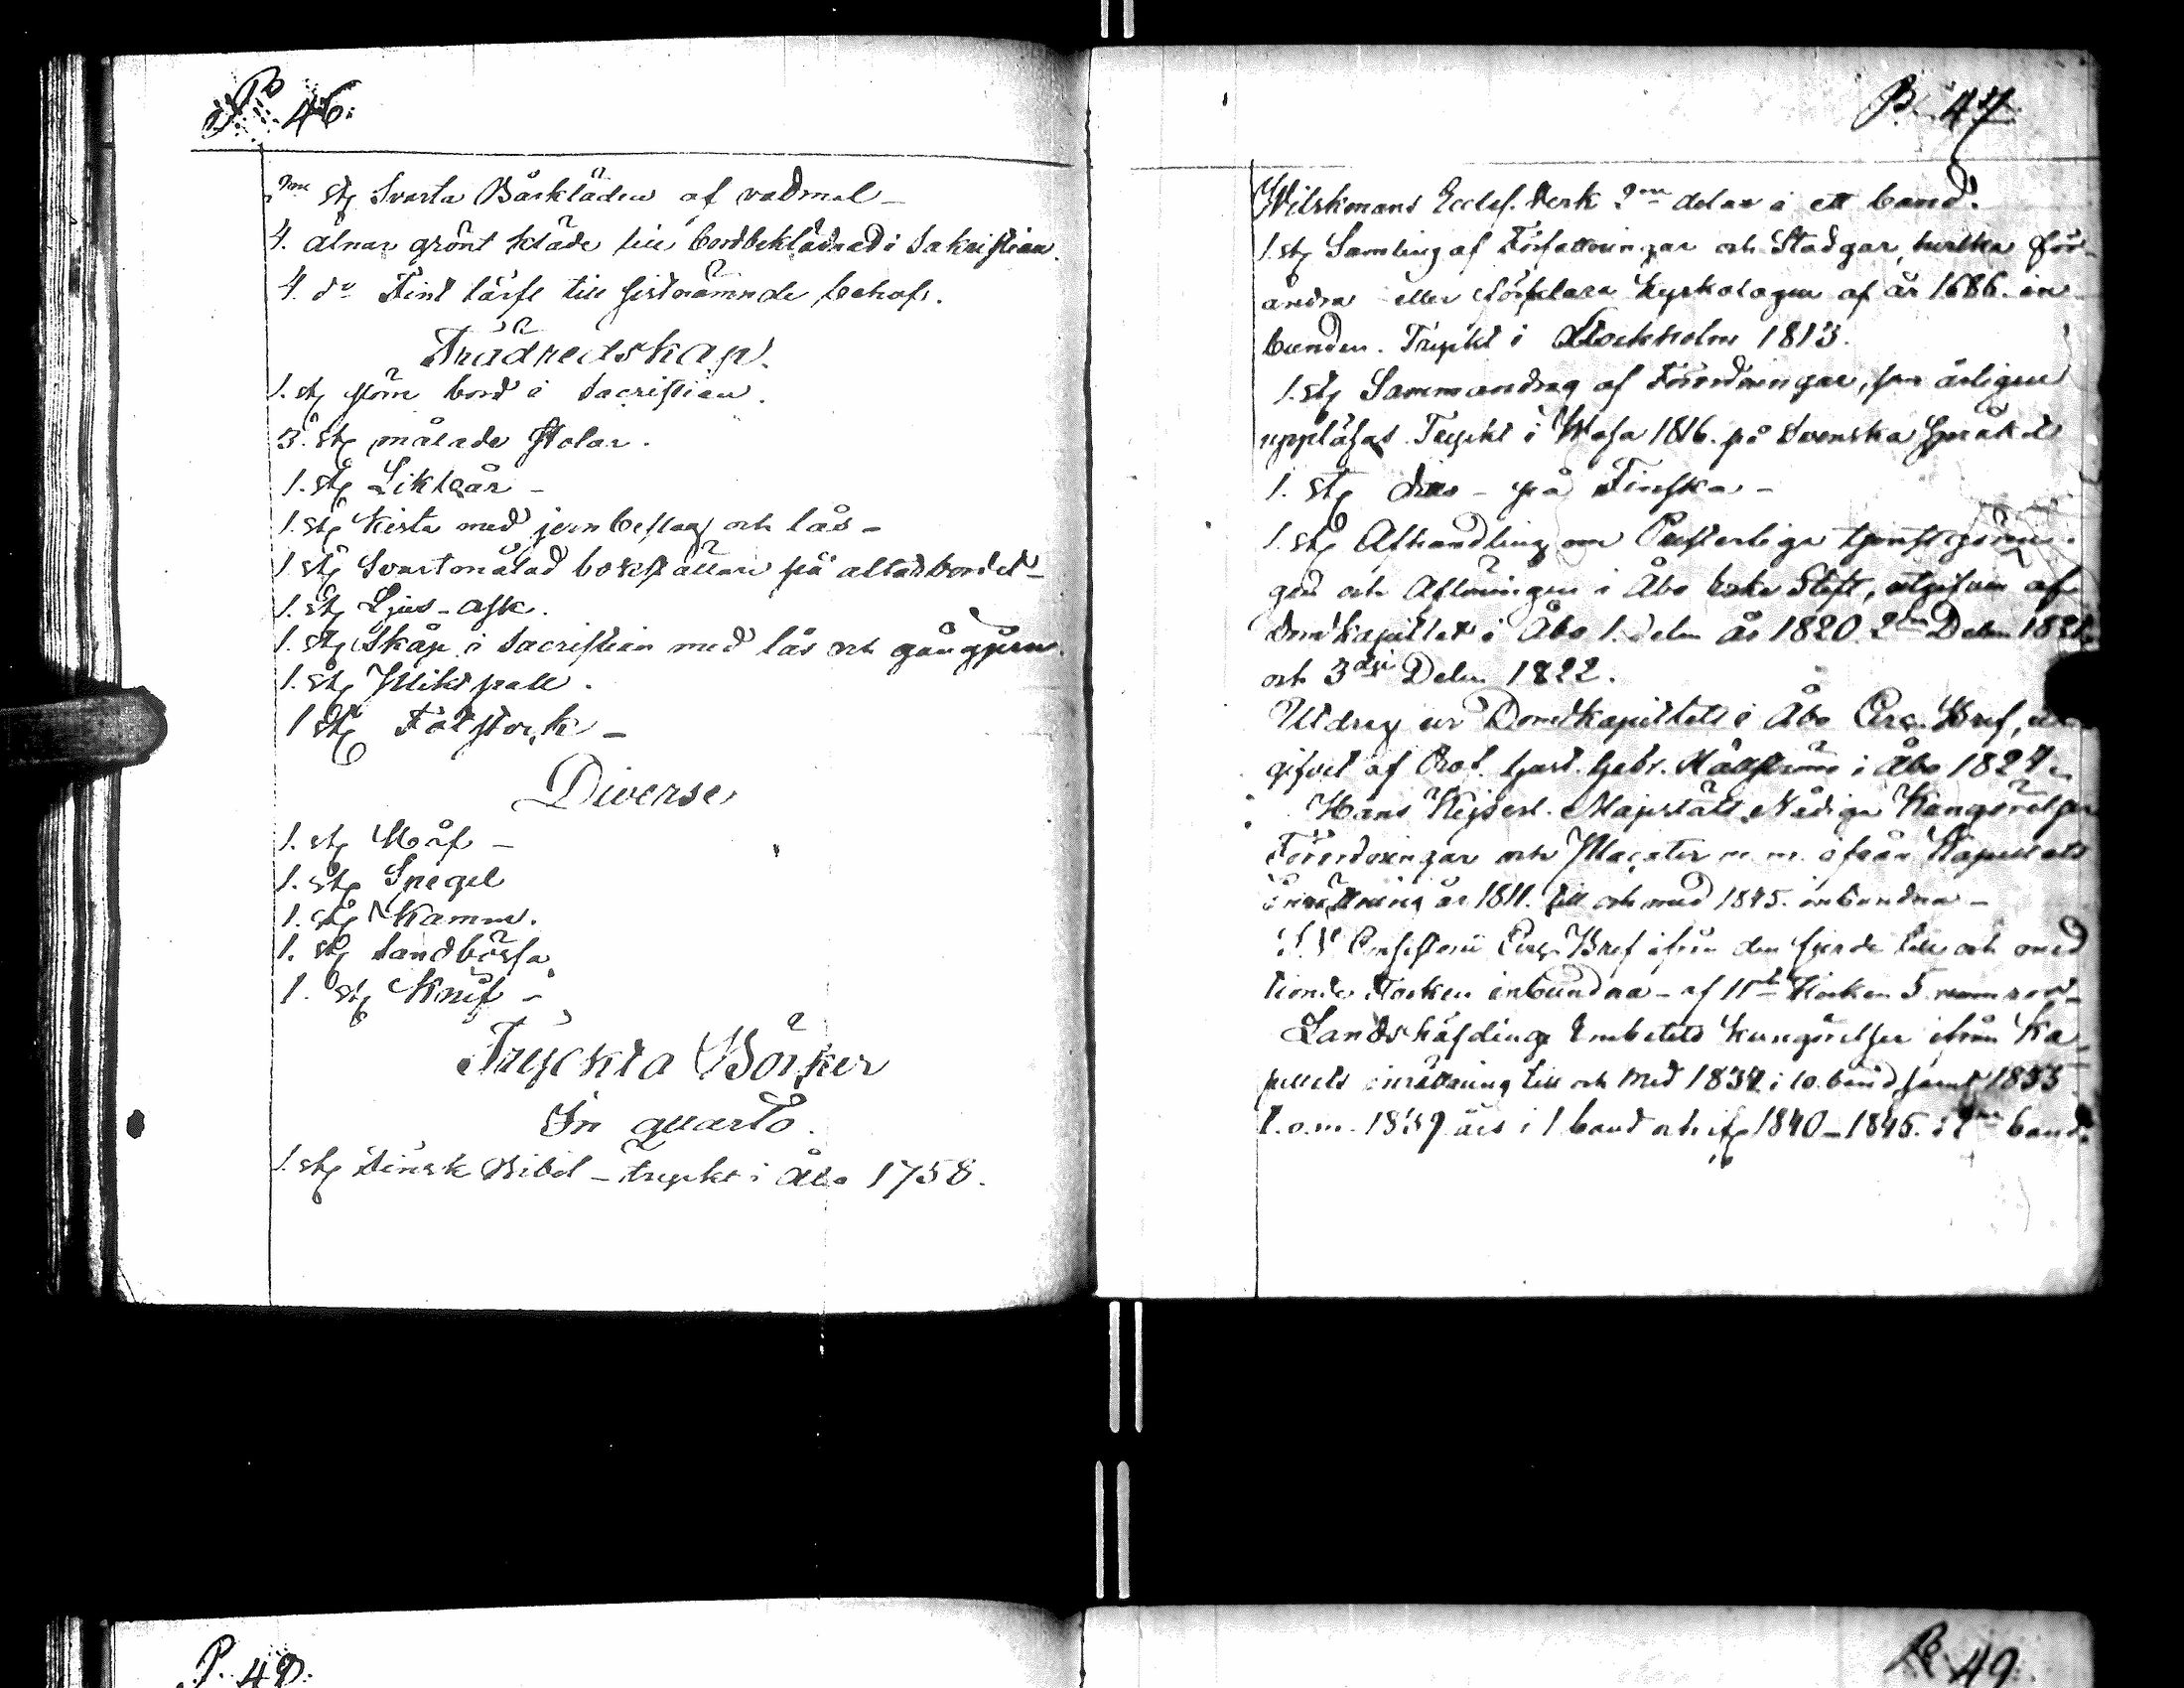 P. 46.
2ne stç Svarta Bårkläden af vadmal _
4. alnar grönt kläde till bordbeklädnad i Sakristian.
4. do Fint lärft till sistnämnde behof.
Trädredskap.
1. stç större bord i Sacristian.
3. stç målade stolar.
1. stç Likbår _
1. stç Kista med jernbeslag och lås _
1 stç Svartmålad bokställare på altarbordet _
1. stç Ljus-ask.
1. stç Skåp i Sacristian med lås och gångjern.
1. stç Plikt pall.
1 stç Fotstock _
Diverse
1. stç Håf _
1. stç Spegel
1. stç Kamm.
1. stç Sandbössa
1. stç Knif _
Tryckta Böcker
In quarto.
1. stç Finsk Bibel _ tryckt i Åbo 1758.
P. 47
Wilskmans Eccles. Verk 2ne delar i ett band.
1. stç Samling af Författningar och Stadgar, hvilka för-
ändra eller förklara Kyrkolagen af år 1686. in
bunden. Tryckt i Stockholm 1813.
1. stç Sammandrag af Förordningar, som årligen
uppläsas. Tryckt i Wasa 1816. på Svenska Språket
1. stç dito _ på Finska _
1. stç Afhandling om Presterliga tjenstgörin-
gen och Aflöningen i Åbo Erke Stift, utgifven af
Domkapitlet i Åbo 1. Delen år 1820. 2dra Delen 1821
och 3dje Delen 1822.
Utdrag ur Domkapitlets i Åbo Circ. Bref, ut
gifvet af Gust. Gabr. Hällström i Åbo 1824.
Hans Kejserl. Majestäts Nådiga Kungörelser
Förordningar och Placater m. m. ifrån Kapellets
inrättning år 1811. till och med 1845. inbundna _
Consistorii Circ. Bref ifrån den fjerde till och med
tionde Flocken inbundna _ af 11te Flocken 5 nummror _
Landshöfdinge Embetets Kungörelser ifrån Ka
pellets inrättning till och med 1834 i 10. band, samt 1835
t. o. m. 1839 års i 1 band och 1840 _ 1845. i 2ne band.
P. 48.
P. 49.